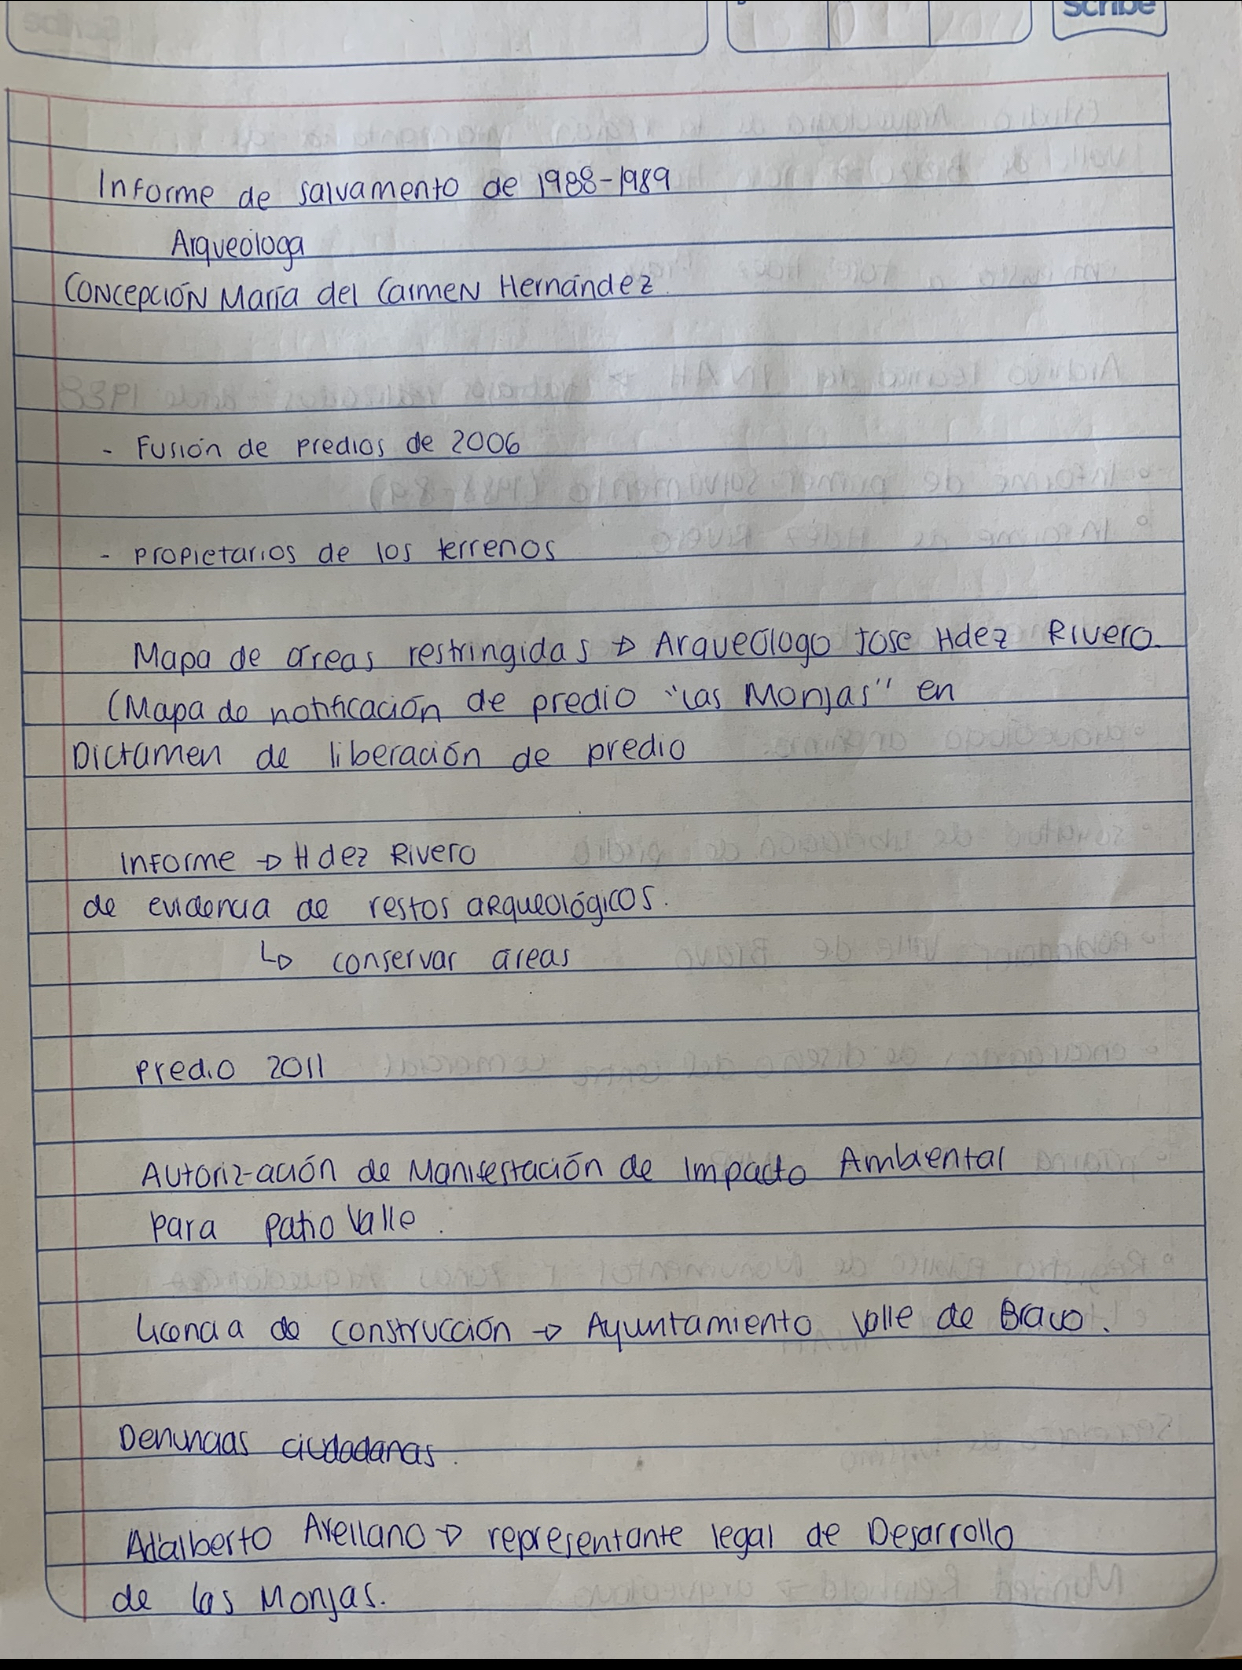 Scribe
Informe de salvamento de 1988-1989
Arqueóloga
Concepción María del Carmen Hernández.
- Fusión de predios de 2006
- Propietarios de los terrenos
Mapa de áreas restringidas → Arqueólogo José Hdez Rivero.
(Mapa de notificación de predio "Las Monjas" en
Dictamen de liberación de predio
Informe → Hdez Rivero
de evidencia de restos arqueológicos.
↳ conservar áreas
Predio 2011
Autorización de Manifestación de Impacto Ambiental
para patio Valle.
Licencia de construcción → Ayuntamiento Valle de Bravo.
Denuncias ciudadanas.
Adalberto Arellano → representante legal de Desarrollo
de las Monjas.